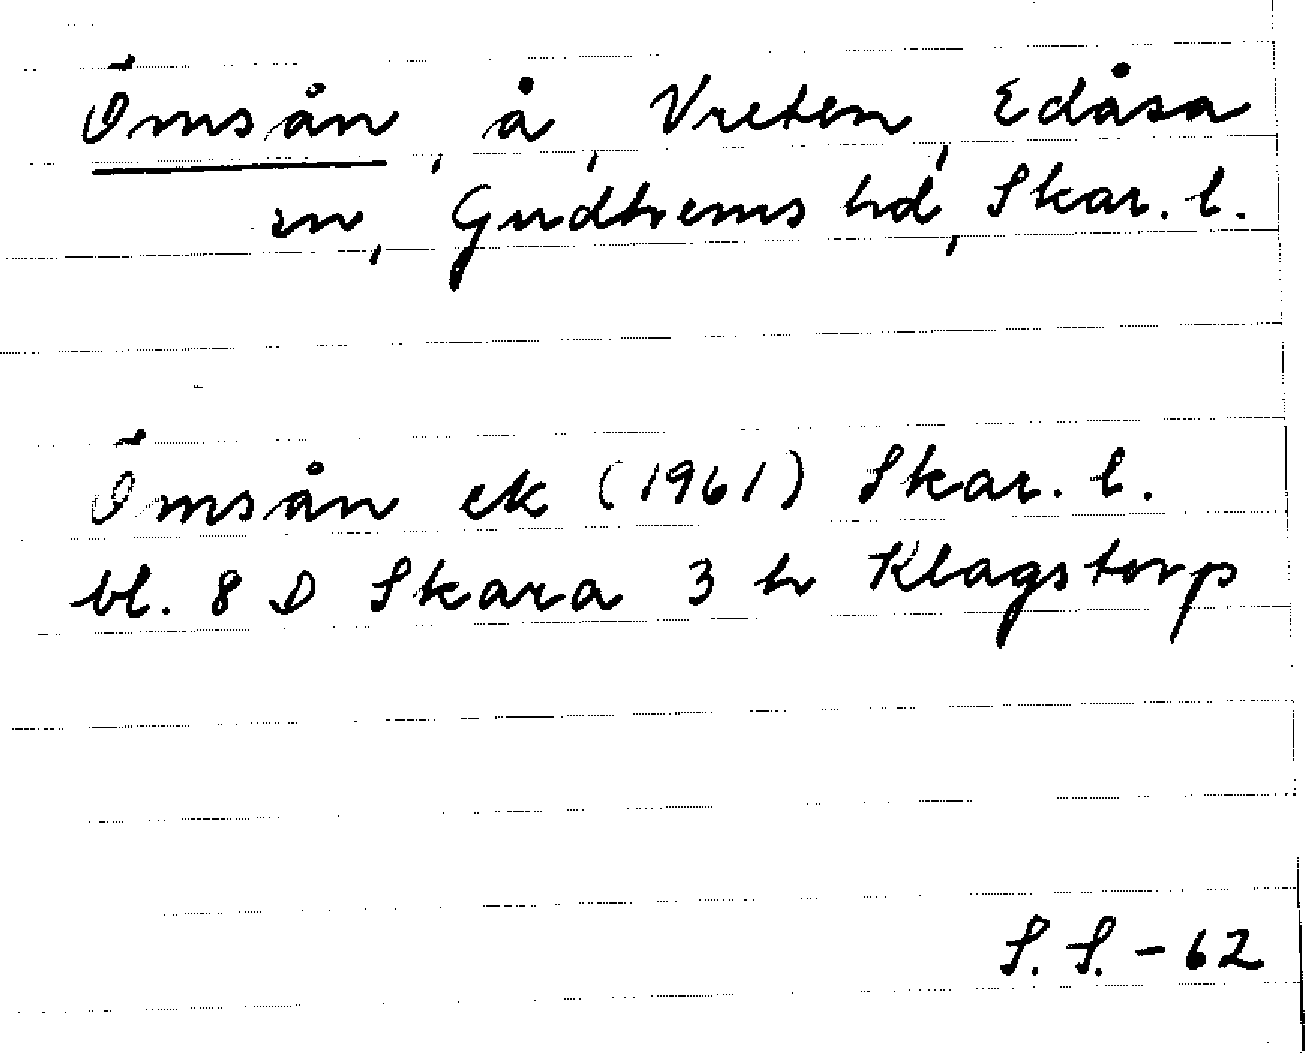 Ömsån, å, Vreten, Edåsa
sn, Gudhems hd, Skar. l.
Ömsån ek (1961) Skar. l.
bl. 8 D Skara 3 h Klagstorp
S. S. - 62